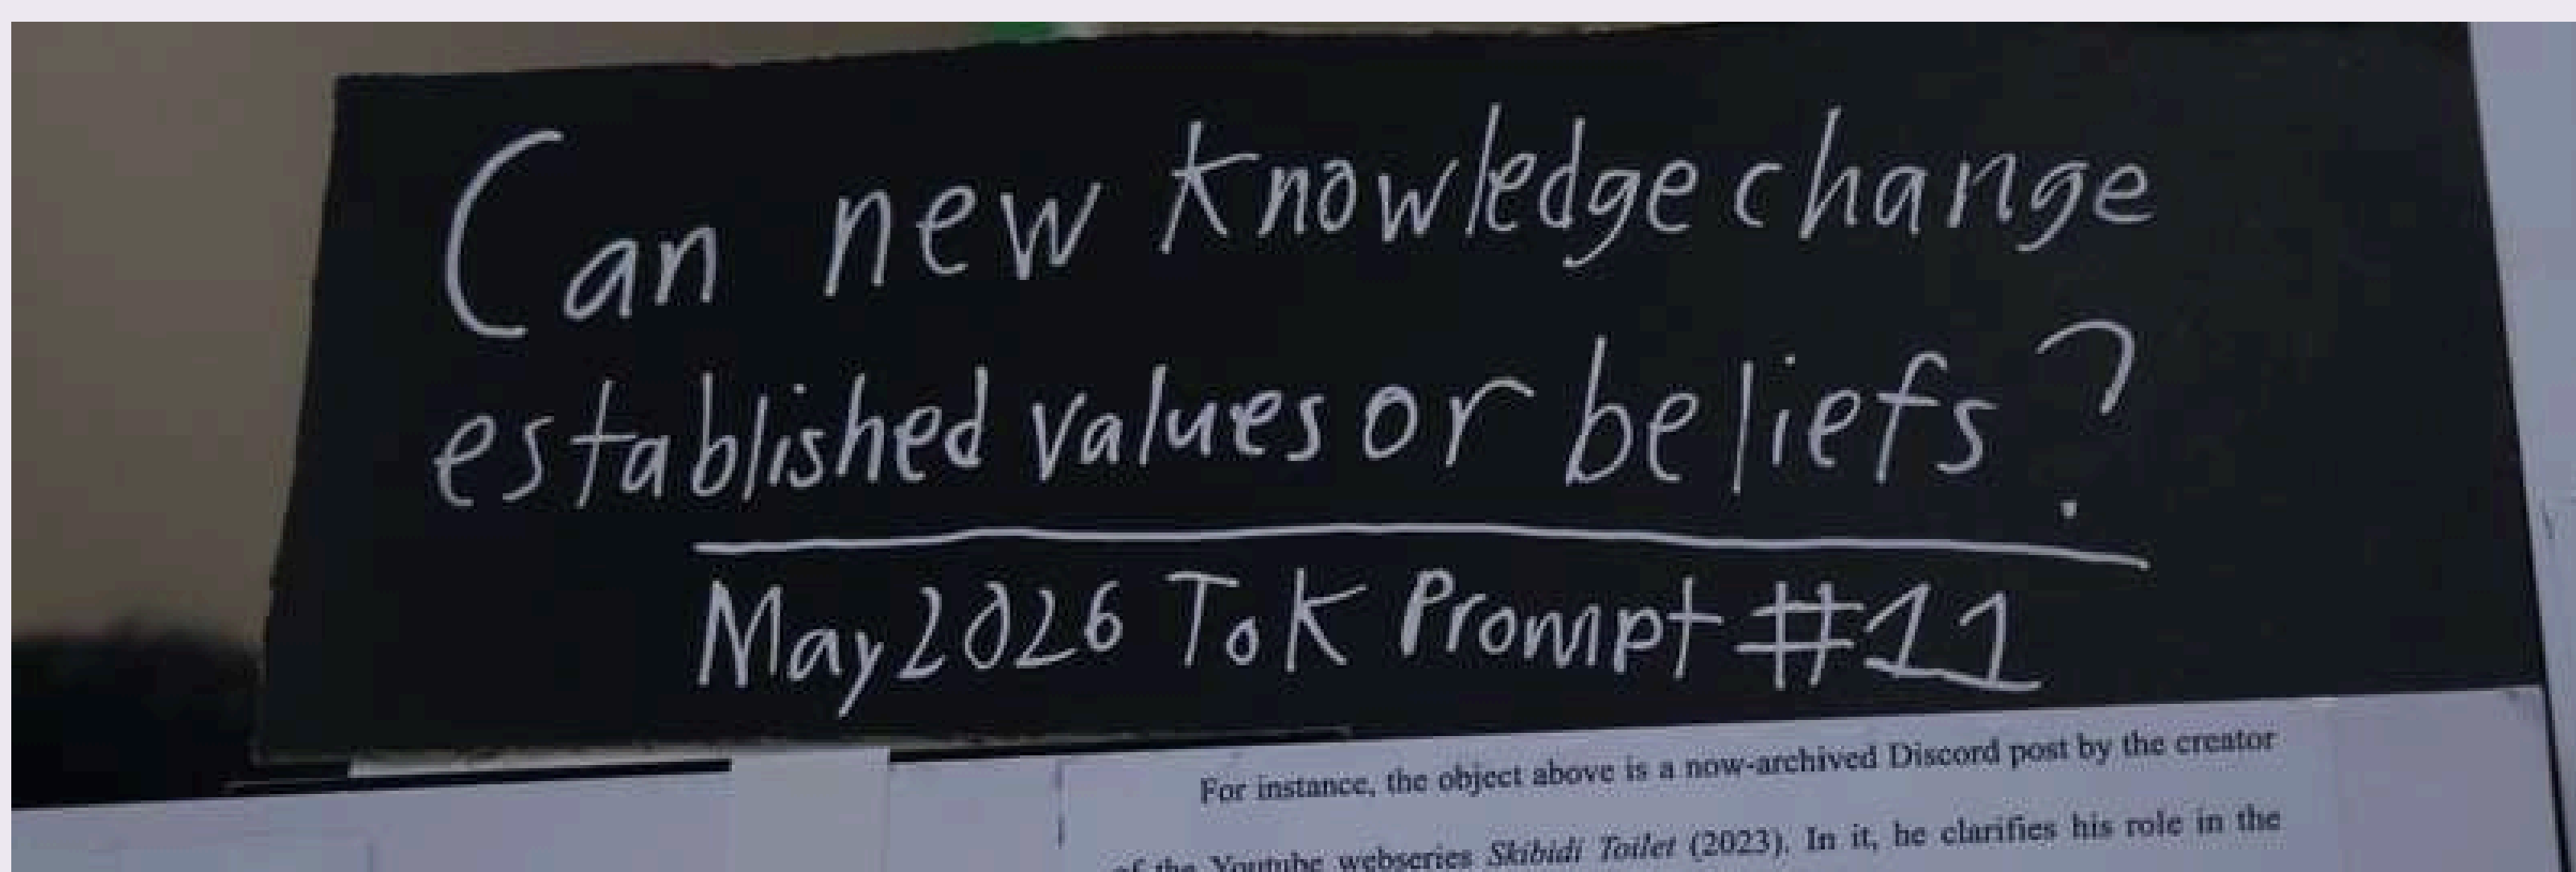 Can new knowledge change
established values or beliefs?
May 2026 ToK Prompt #11
For instance, the object above is a now-archived Discord post by the creator
of the Youtube webseries Skibidi Toilet (2023). In it, he clarifies his role in the